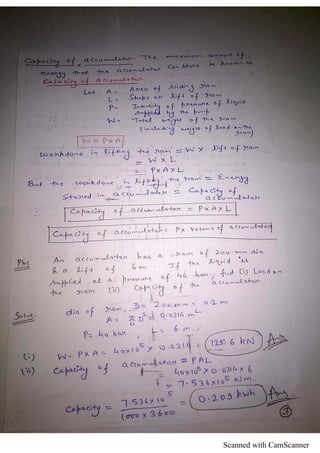 Capacity of accumulator - The maximum amount of
energy that the accumulator can store is known as
Capacity of accumulator.
Let A = Area of sliding ram
L = Stroke or lift of ram
P = Intensity of pressure of liquid
supplied by the pump
W = Total weight of the ram
(including weight of load on the
ram)
W = P×A
Workdone in lifting the ram = W × lift of ram
= W × L
= P×A×L
But the workdone in lifting the ram = Energy
Stored in accumulator = Capacity of
accumulators
Capacity of accumulator = P×A×L
Capacity of accumulator = P× Volume of accumulator
Pb) An accumulator has a ram of 200 mm dia
& a lift of 6m If the liquid is
supplied at a pressure of 40 bar, find (i) Load on
the ram (ii) Capacity of the accumulator.
Solve. dia of ram, D = 200mm = 0.2 m
A = π/4 D² = 0.0314 m²
P = 40 bar, L = 6 m.
(i) W = P×A = 40×10⁵ × 0.0314 = 125.6 kN Ans
(ii) Capacity of accumulator = PAL
= 40×10⁵ × 0.0314 × 6
= 7.536×10⁵ Nm.
Capacity = 7.536×10⁵ / 1000×3600 = 0.209 kwh Ans
Scanned with CamScanner